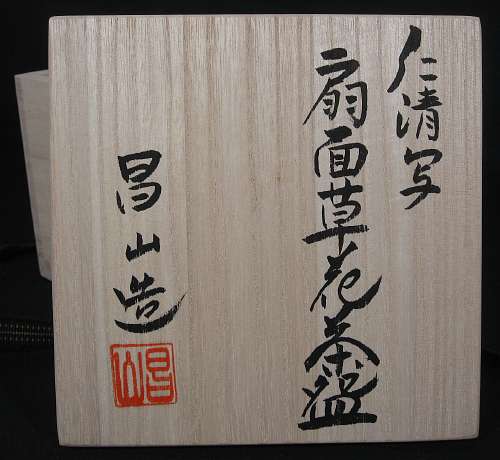 仁清写
扇面草花茶盌
昌山造
昌山